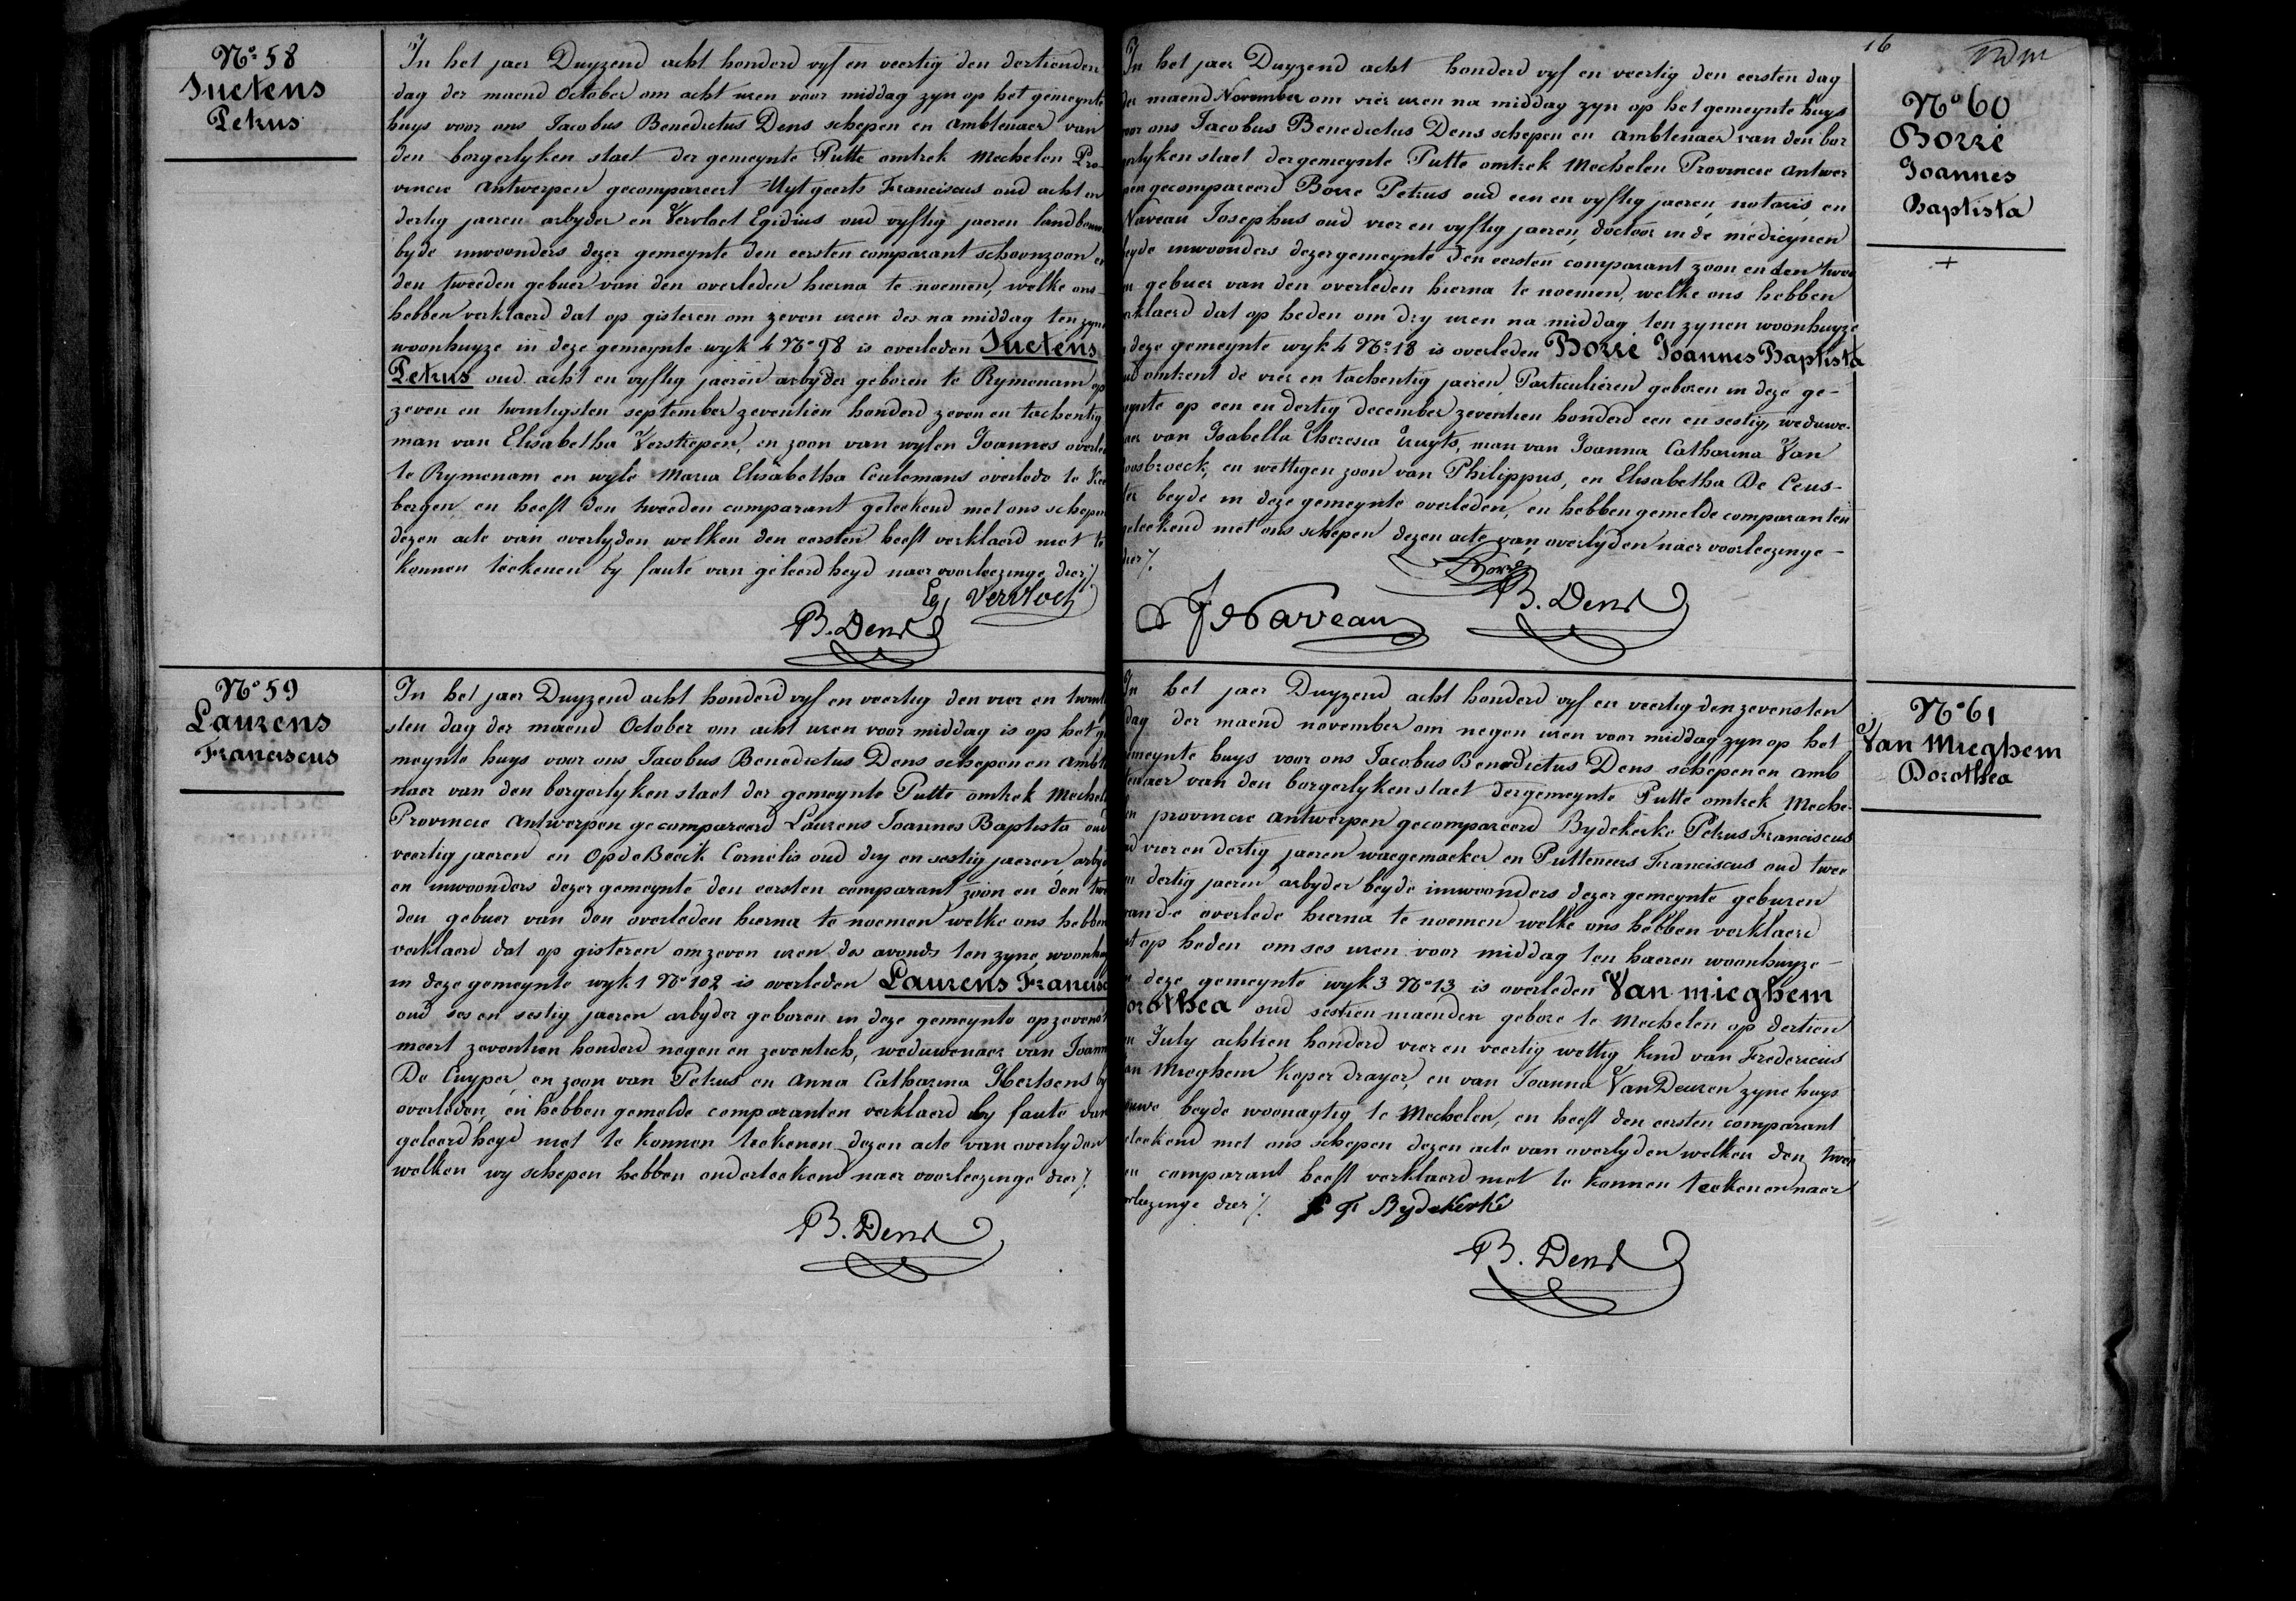 Nº 58
Suetens
Petrus
In het jaer Duyzend acht honderd vyf en veertig den dertienden
dag der maend October om acht uren voor middag zyn op het gemeynte
huys voor ons Jacobus Benedictus Dens schepen en Ambtenaer van
den borgerlyken staet der gemeynte Putte omtrek Mechelen Pro
vincie Antwerpen gecompareert Uytgeerts Franciscus oud acht en
dertig jaeren arbyder en Vervloet Egidius oud vyftig jaeren landbouw
byde inwoonders dezer gemeynte den eersten comparant schoonzoon en
den tweeden gebuer van den overleden hierna te noemen, welke ons
hebben verklaerd dat op gisteren om zeven uren des na middag ten zyne
woonhuyze in deze gemeynte wyk 4 Nº 98 is overleden Suetens
Petrus oud acht en vyftig jaeren arbyder geboren te Rymenam op
zeven en twintigsten september zeventien honderd zeven en tachentig
man van Elisabetha Verstrepen, en zoon van wylen Joannes overle
te Rymenam en wyle Maria Elisabetha Ceulemans overlede te Kee
bergen en heeft den tweeden comparant geteekend met ons schepen
dezen acte van overlyden welken den eersten heeft verklaerd niet te
konnen teekenen by faute van geleerdheyd naer voorlezinge dier ⁒
Eg Vervloet
B. Dens
Nº 59
Laurens
Franciscus
In het jaer Duyzend acht honderd vyf en veertig den vier en twint
sten dag der maend October om acht uren voor middag is op het g
meynte huys voor ons Jacobus Benedictus Dens schepen en Ambt
naer van den borgerlyken staet der gemeynte Putte omtrek Mechel
Provincie Antwerpen gecompareerd Laurens Joannes Baptista oud
veertig jaeren en OpdeBeeck Cornelis oud dry en sestig jaeren, arby
en inwoonders dezer gemeynte den eersten comparant zoon en den twe
den gebuer van den overleden hierna te noemen welke ons hebben
verklaerd dat op gisteren om zeven uren des avonds ten zyne woonhuy
in deze gemeynte wyk 1 Nº 102 is overleden Laurens Francisc
oud ses en sestig jaeren arbyder geboren in deze gemeynte op zevenst
meert zeventien honderd negen en zeventich, weduwenaer van Joann
De Cuyper, en zoon van Petrus en Anna Catharina Hertsens by
overleden, en hebben gemelde comparanten verklaerd by faute van
geleerdheyd niet te konnen teekenen dezen acte van overlyden
welken wy schepen hebben onderteekend naer voorlezinge dier ⁒
B. Dens
16
Nº 60
Borré
Joannes
Baptista
+
In het jaer Duyzend acht honderd vyf en veertig den eersten dag
der maend November om vier uren na middag zyn op het gemeynte huys
voor ons Jacobus Benedictus Dens schepen en Ambtenaer van den bor
gerlyken staet der gemeynte Putte omtrek Mechelen Provincie Antwer
pen gecompareerd Borre Petrus oud een en vyftig jaeren, notaris, en
Naveau Josephus oud vier en vyftig jaeren, doctoor in de medicynen
beyde inwoonders dezer gemeynte den eersten comparant zoon en den twee
en gebuer van den overleden hierna te noemen, welke ons hebben
rklaerd dat op heden om dry uren na middag ten zynen woonhuyze
deze gemeynte wyk 4 Nº 18 is overleden Borré Joannes Baptista
oud omtrent de vier en tachentig jaeren, Particulieren geboren in deze ge-
ynte op een en dertig december zeventien honderd een en sestig, weduwe-
naer van Isabella Theresia Truyts, man van Joanna Catharina Van
oosbroeck, en wettigen zoon van Philippus, en Elisabetha De Ceus-
ter beyde in deze gemeynte overleden, en hebben gemelde comparanten
geteekend met ons schepen dezen acte van overlyden naer voorleezinge-
dier ⁒
Borré
J Naveau
B. Dens
Nº 61
Van Mieghem
Dorothea
In het jaer Duyzend acht honderd vyf en veertig den zevensten
dag der maend november om negen uren voor middag zyn op het
emeynte huys voor ons Jacobus Benedictus Dens schepen en amb
tenaer van den borgerlyken staet der gemeynte Putte omtrek Meche-
en provincie Antwerpen gecompareerd Bydekerke Petrus Franciscus
ud vier en dertig jaeren waegemaeker en Putteneers Franciscus oud twee
en dertig jaeren arbyder beyde inwoonders dezer gemeynte geburen
van de overlede hierna te noemen welke ons hebben verklaerd
at op heden om ses uren voor middag ten haeren woonhuyze-
deze gemeynte wyk 3 Nº 13 is overleden Van mieghem
Dorothea oud sestien maenden gebore te Mechelen op dertien
en July achtien honderd vier en veertig wettig kind van Fredericus
an Mieghem koperdrayer, en van Joanna Van Deuren zyne huys
ouwe beyde woonagtig te Mechelen, en heeft den eersten comparant
eteekend met ons schepen dezen acte van overlyden welken den twee
en comparant heeft verklaerd niet te konnen teekenen naer
orlezinge dier ⁒ P F Bydekerke
B. Dens